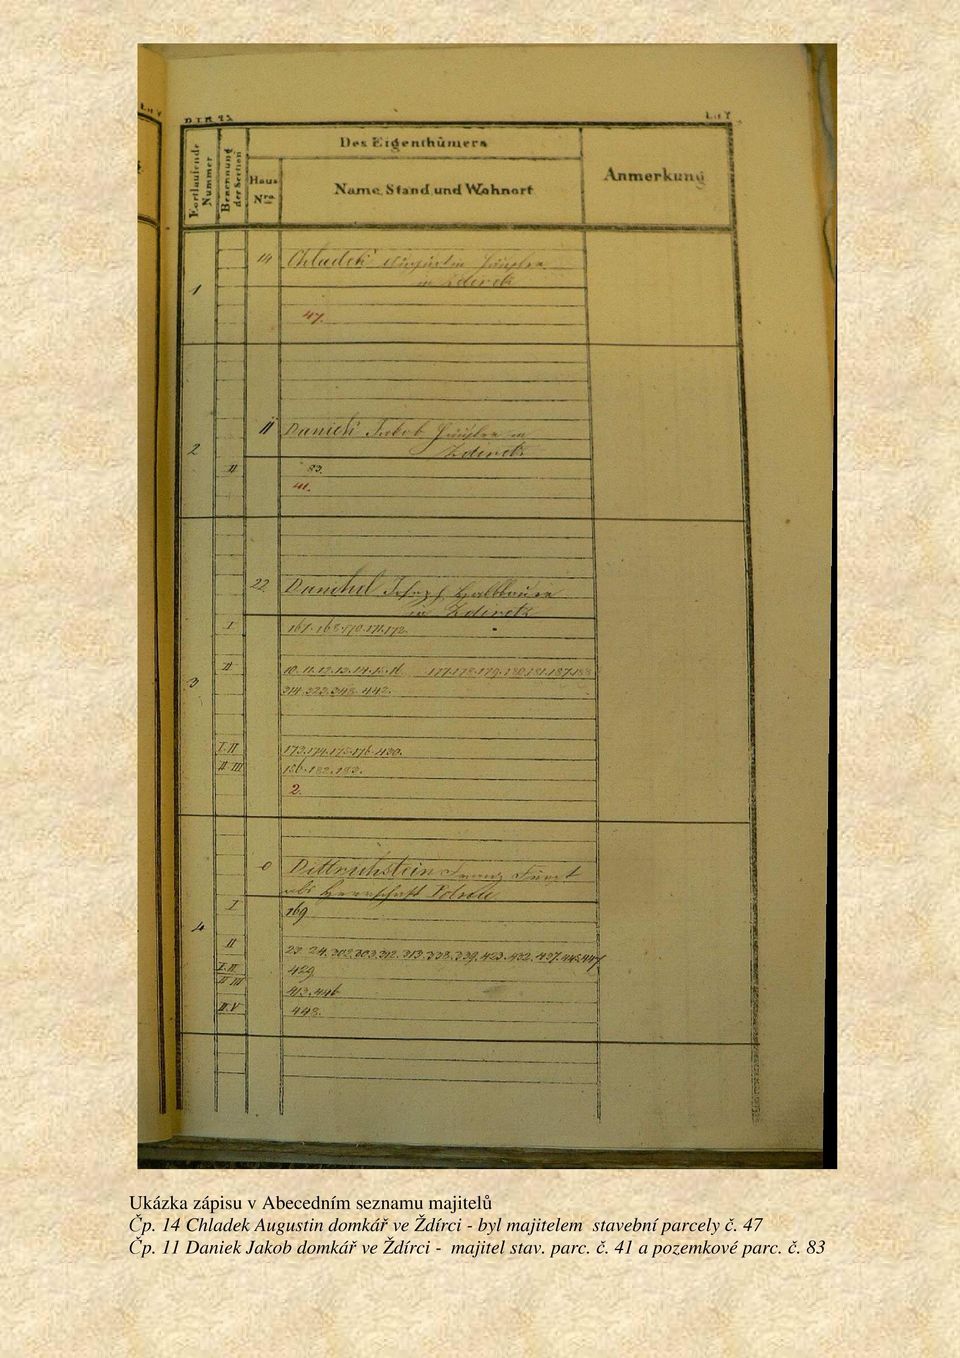 Lit Y
Des Eigenthümers
Anmerkung
Fortlaufende Nummer
Benennung der Section
Haus Nro.
Name, Stand und Wohnort
14 Chladek Augustin Häusler
in Zderetz
1
47.
11 Daniek Jakob Häusler in
Zderetz
2
II 83.
41.
22. Josef
in Zderetz
I 170.171.172.
II 10.11.12.13.14.15.16. 177.178.179.180.181.187.188
314.323.348.442.
3
I.II 173.174.175.176.430.
II.III 156.182.183.
2.
0 Dittrichstein Franz Fürst
Herrschaft
I 169
4
II 23.24.302.303.312.313.338.339.423.432.437.445.447.
I.II. 429
II III 413.446
II.V 448.
Ukázka zápisu v Abecedním seznamu majitelů
Čp. 14 Chladek Augustin domkář ve Ždírci - byl majitelem stavební parcely č. 47
Čp. 11 Daniek Jakob domkář ve Ždírci - majitel stav. parc. č. 41 a pozemkové parc. č. 83